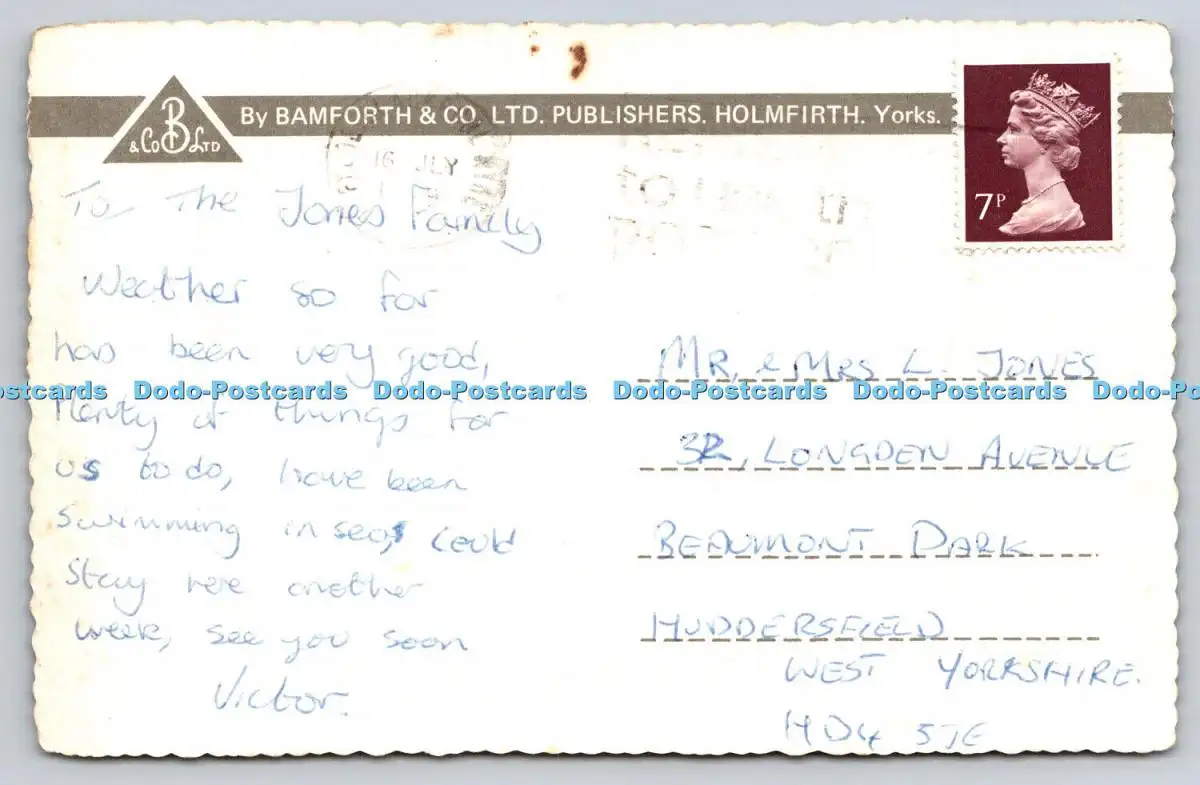 B
& Co LTD
By BAMFORTH & CO. LTD. PUBLISHERS. HOLMFIRTH. Yorks.
16 JLY
TO
7P
To The Jones Family
Weather so far
has been very good,
Plenty of things for
us to do, have been
Swimming in sea, could
Stay here another
week, see you soon
Victor.
MR. & MRS L. JONES
32, LONGDEN AVENUE
BEAUMONT PARK
HUDDERSFIELD
WEST YORKSHIRE.
HD4 5JE
ostcards Dodo-Postcards Dodo-Postcards Dodo-Postcards Dodo-Postcards Dodo-Po